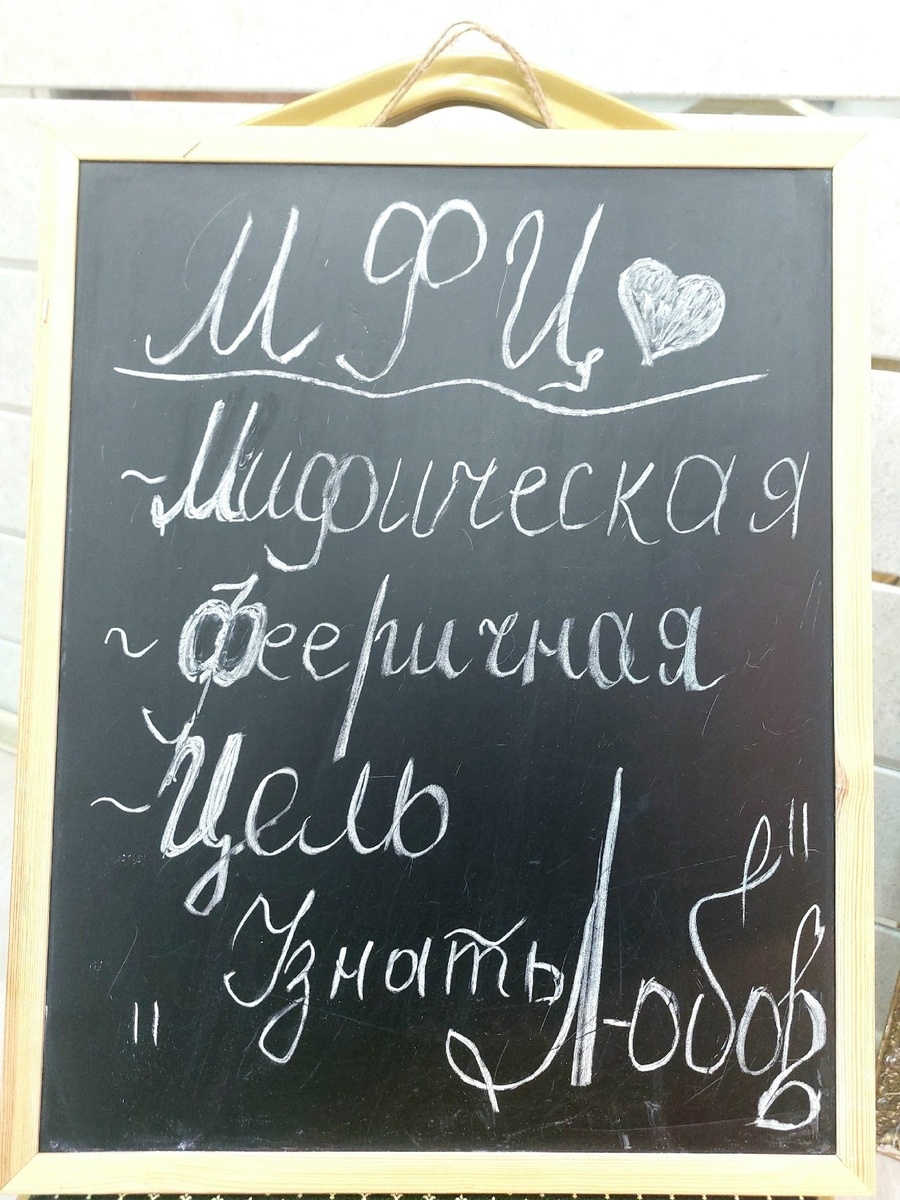 МФЦ
~Мифическая
~ Фееричная
~Цель
Узнать Любовь
" "